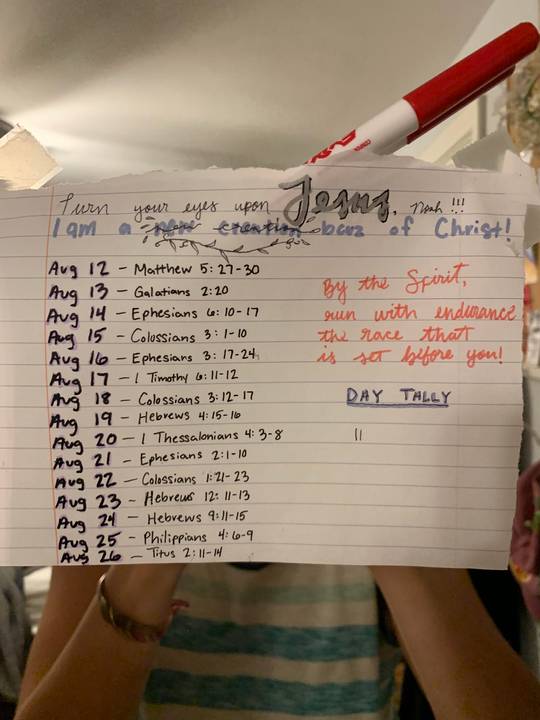 Turn your eyes upon Jesus, Noah !!!
I am a new creation bcuz of Christ!
Aug 12 - Matthew 5:27-30
Aug 13 - Galatians 2:20
Aug 14 - Ephesians 6:10-17
Aug 15 - Colossians 3:1-10
Aug 16 - Ephesians 3:17-24
Aug 17 - 1 Timothy 6:11-12
Aug 18 - Colossians 3:12-17
Aug 19 - Hebrews 4:15-16
Aug 20 - 1 Thessalonians 4:3-8
Aug 21 - Ephesians 2:1-10
Aug 22 - Colossians 1:21-23
Aug 23 - Hebrews 12:11-13
Aug 24 - Hebrews 9:11-15
Aug 25 - Philippians 4:6-9
Aug 26 - Titus 2:11-14
By the Spirit,
run with endurance
the race that
is set before you!
DAY TALLY
||